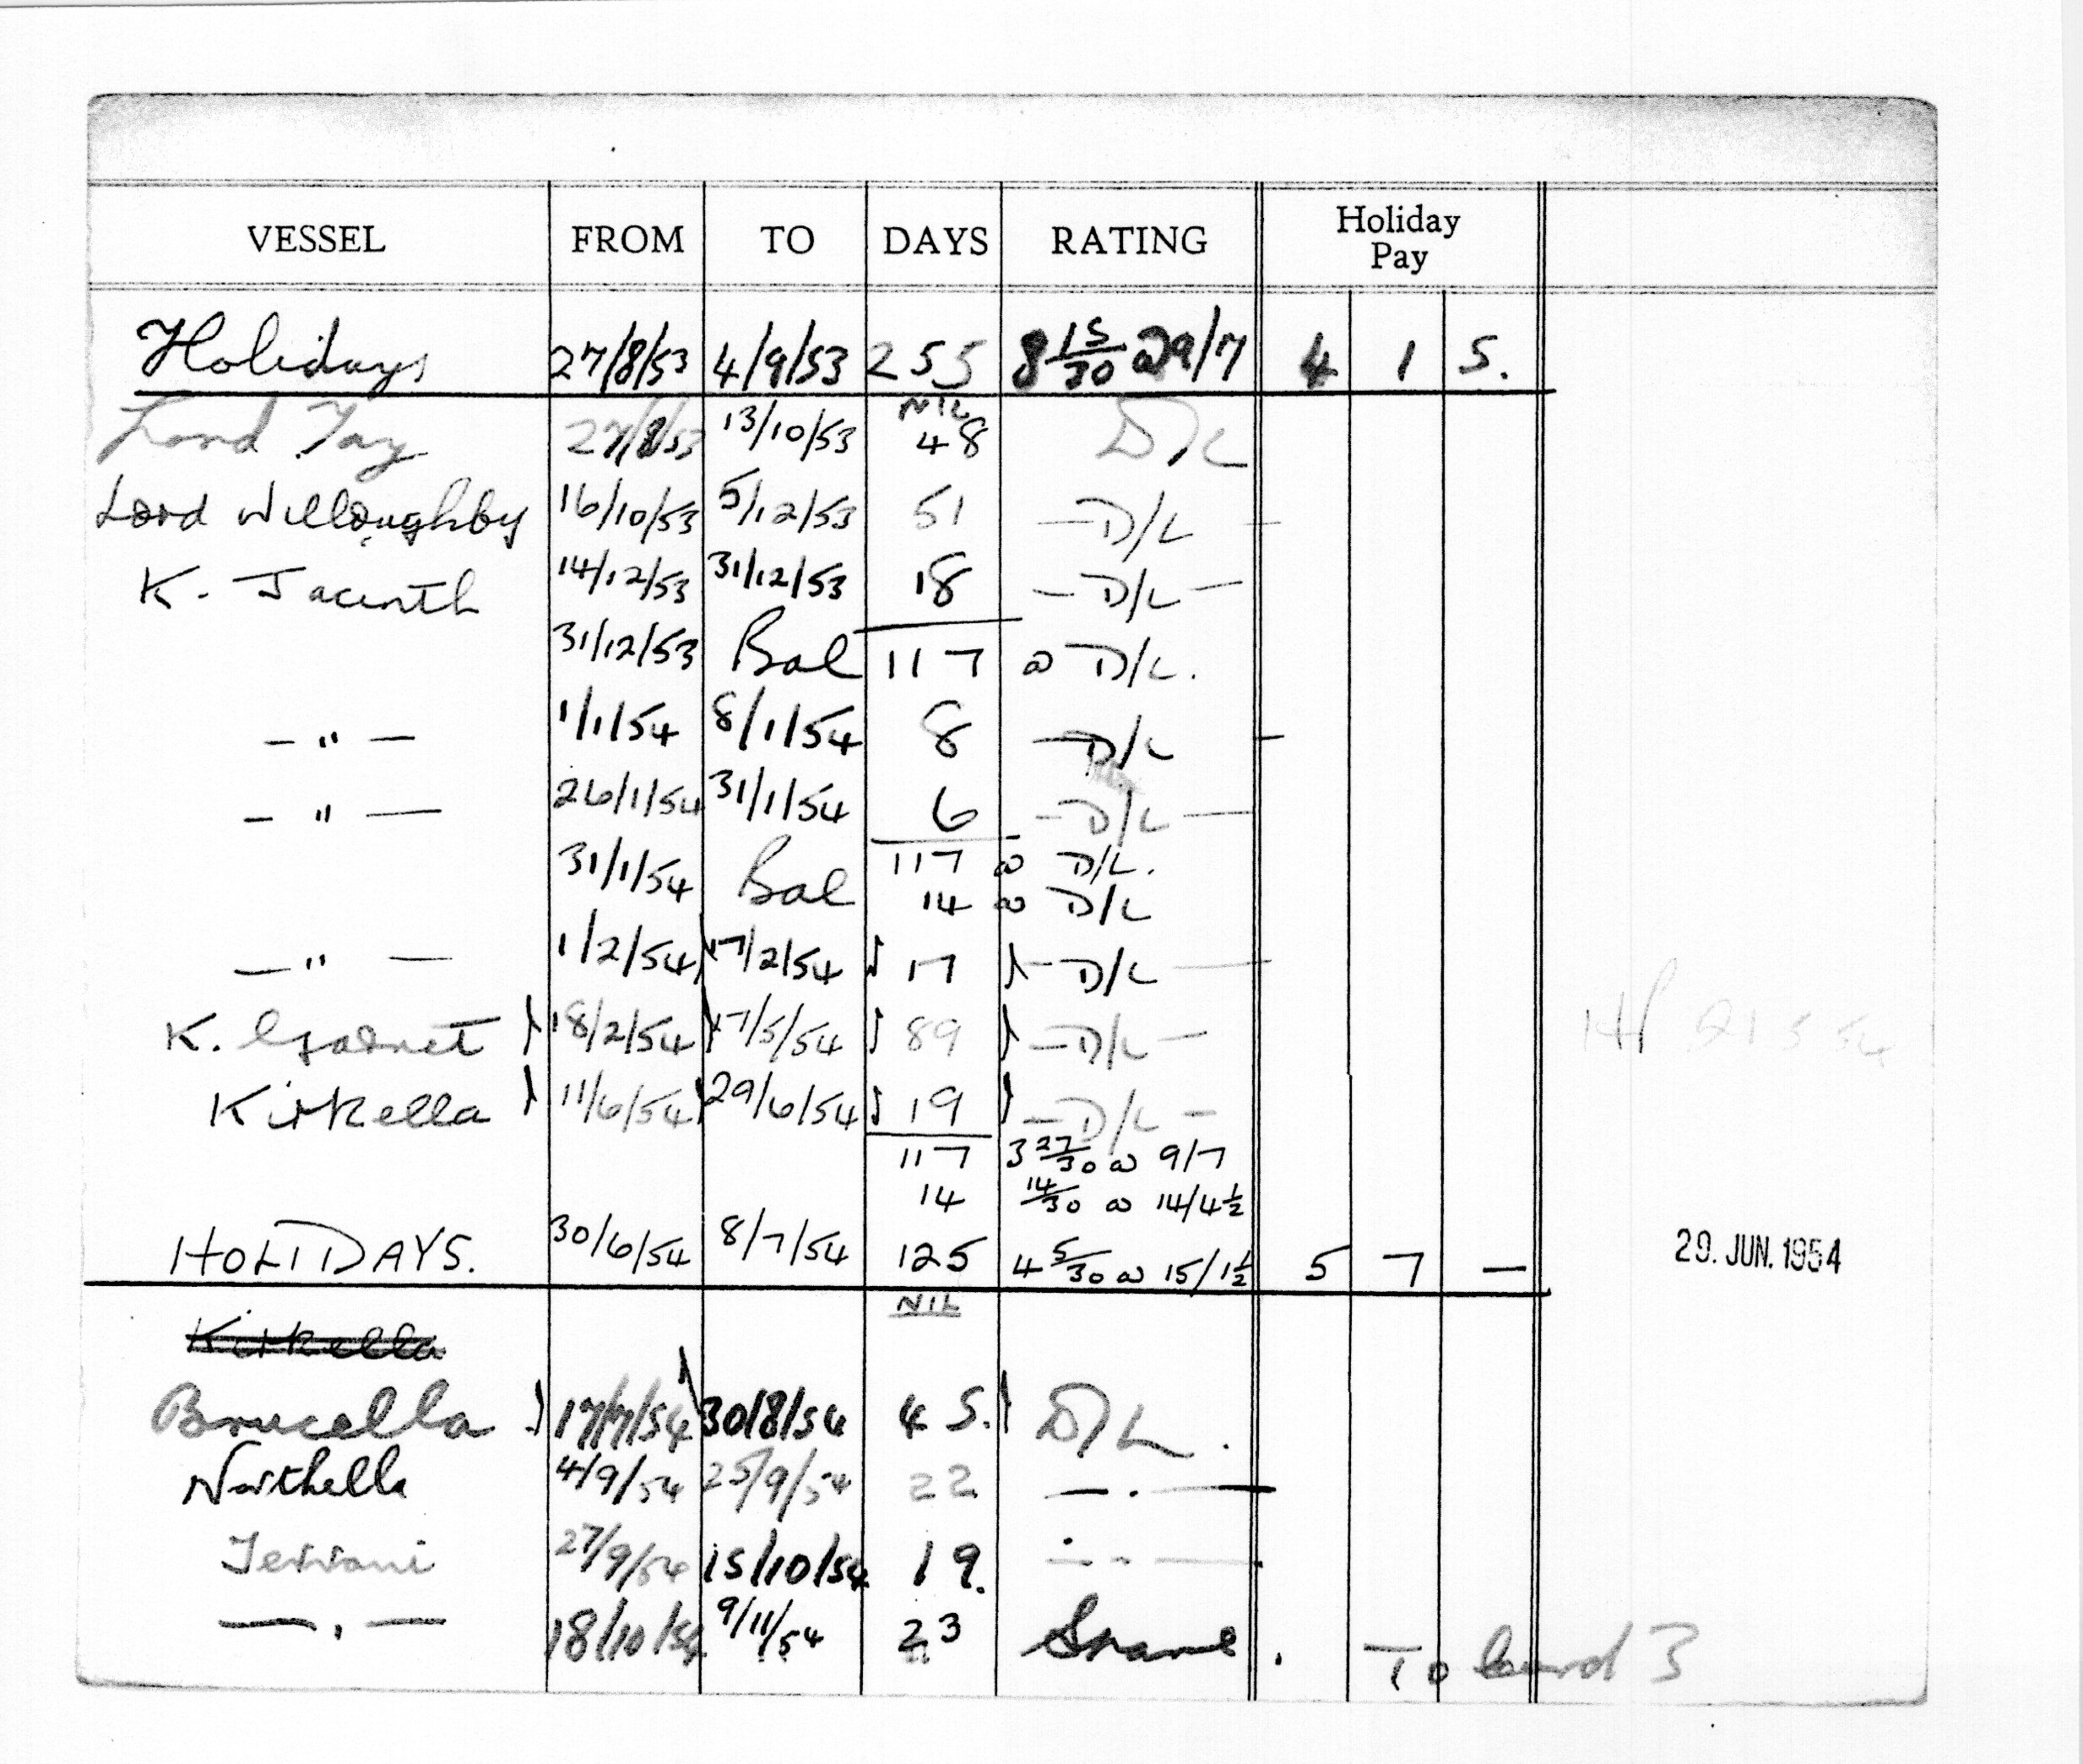 VESSEL FROM TO DAYS RATING Holiday Pay
Holidays 27/8/53 4/9/53 255 8 15/30 @ 9/7 4 1 5.
NIL
Lord Tay 27/8/53 13/10/53 48 D/L
Lord Willoughby 16/10/53 5/12/53 51 — D/L —
K. Jacinth 14/12/53 31/12/53 18 — D/L —
31/12/53 Bal 117 @ D/L.
— " — 1/1/54 8/1/54 8 — D/L —
— " — 26/1/54 31/1/54 6 — D/L —
31/1/54 Bal 117 @ D/L.
14 @ D/L
— " — 1/2/54 17/2/54 17 — D/L —
K. Garnet 18/2/54 17/5/54 89 — D/L —
Kirkella 11/6/54 29/6/54 19 — D/L —
117 3 27/30 @ 9/7
14 14/30 @ 14/4½
HOLIDAYS. 30/6/54 8/7/54 125 4 5/30 @ 15/1½ 5 7 — 29. JUN. 1954
NIL
Kirkella
Brucella 17/7/54 30/8/54 45. D/L.
Northella 4/9/54 25/9/54 22 — . —
Terrani 27/9/54 15/10/54 19. — " —
— , — 18/10/54 9/11/54 23 Spare. To Card 3